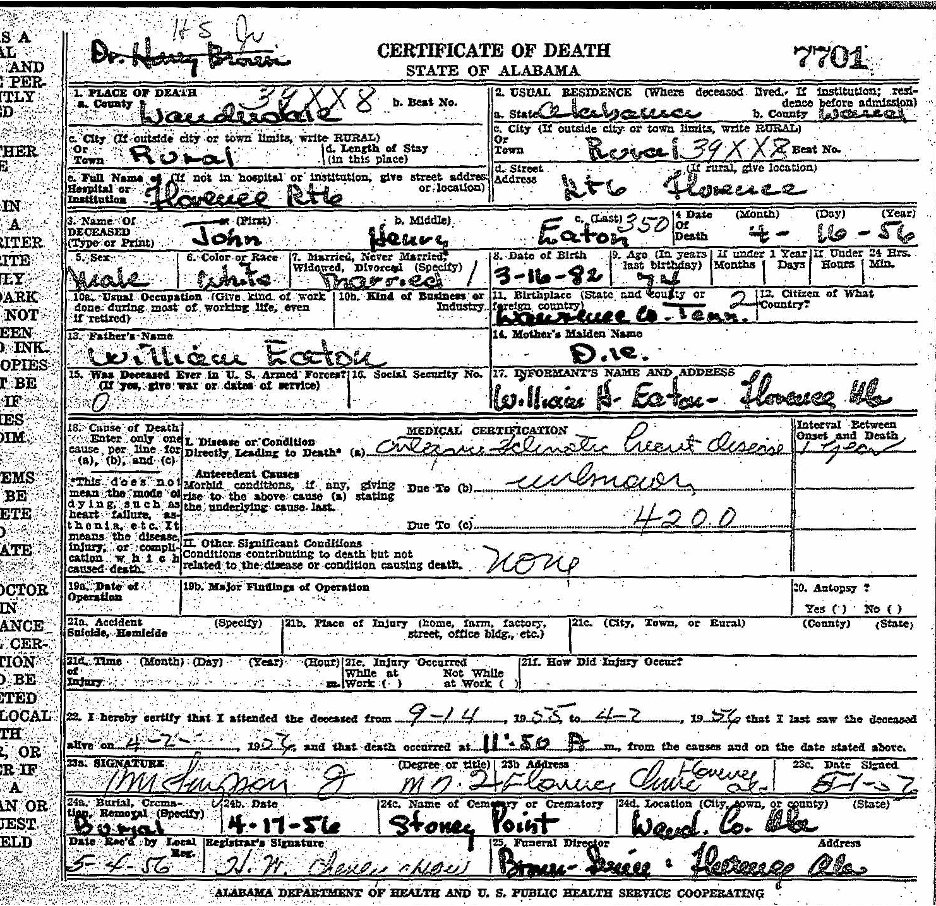 H S Jr
Dr. Henry Brown
CERTIFICATE OF DEATH
STATE OF ALABAMA
7701
1. PLACE OF DEATH
a. County 39XX8 b. Beat No.
c. City (If outside city or town limits, write RURAL)
Or Town Rural
d. Length of Stay (in this place)
e. Full Name of (If not in hospital or institution, give street address or location)
Hospital or Institution Florence Rt 6
2. USUAL RESIDENCE (Where deceased lived. If institution; residence before admission)
a. State Alabama b. County
c. City (If outside city or town limits, write RURAL)
Or Town Rural 39XX8 Beat No.
d. Street Address (If rural, give location)
Rt 6 Florence
3. Name Of DECEASED (Type or Print)
a. (First) John b. Middle) Henry c. (Last) Eaton 350
4 Date Of Death (Month) (Day) (Year)
4 - 16 - 56
5. Sex Male
6. Color or Race White
7. Married, Never Married, Widowed, Divorced (Specify) Married 1
8. Date of Birth 3-16-82
9. Age (In years last birthday) 74
If under 1 Year Months Days
If Under 24 Hrs. Hours Min.
10a. Usual Occupation (Give kind of work done during most of working life, even if retired)
10b. Kind of Business or Industry
11. Birthplace (State and county or foreign country) Lawrence Co. Tenn. 2
12. Citizen of What Country?
13. Father's Name
William Eaton
14. Mother's Maiden Name
D.K.
15. Was Deceased Ever in U. S. Armed Forces? (If yes, give war or dates of service)
0
16. Social Security No.
17. INFORMANT'S NAME AND ADDRESS
William H. Eaton - Florence Ala
18. Cause of Death
Enter only one cause per line for (a), (b), and (c)
*This does not mean the mode of dying, such as heart failure, asthenia, etc. It means the disease, injury, or complication which caused death.
MEDICAL CERTIFICATION
I. Disease or Condition Directly Leading to Death* (a) heart disease
Interval Between Onset and Death
1 year
Antecedent Causes
Morbid conditions, if any, giving rise to the above cause (a) stating the underlying cause last.
Due To (b) unknown
Due To (c) 4200
II. Other Significant Conditions
Conditions contributing to death but not related to the disease or condition causing death. None
19a. Date of Operation
19b. Major Findings of Operation
20. Autopsy ?
Yes ( ) No ( )
21a. Accident Suicide, Homicide (Specify)
21b. Place of Injury (home, farm, factory, street, office bldg., etc.)
21c. (City, Town, or Rural) (County) (State)
21d. Time of Injury (Month) (Day) (Year) (Hour) m.
21e. Injury Occurred While at Work ( ) Not While at Work ( )
21f. How Did Injury Occur?
22. I hereby certify that I attended the deceased from 9-14, 1955 to 4-2, 1956 that I last saw the deceased
alive on 4-2, 1956 and that death occurred at 11:50 P m., from the causes and on the date stated above.
23a. SIGNATURE (Degree or title) 23b Address 23c. Date Signed
M.D. Florence Clinic Florence Ala
24a. Burial, Cremation, Removal (Specify) Burial
24b. Date 4-17-56
24c. Name of Cemetery or Crematory Stoney Point
24d. Location (City, town, or county) (State) Laud. Co. Ala
Date Rec'd by Local Reg. 5-4-56
Registrar's Signature H. W.
25. Funeral Director Address
Florence Ala
ALABAMA DEPARTMENT OF HEALTH AND U. S. PUBLIC HEALTH SERVICE COOPERATING